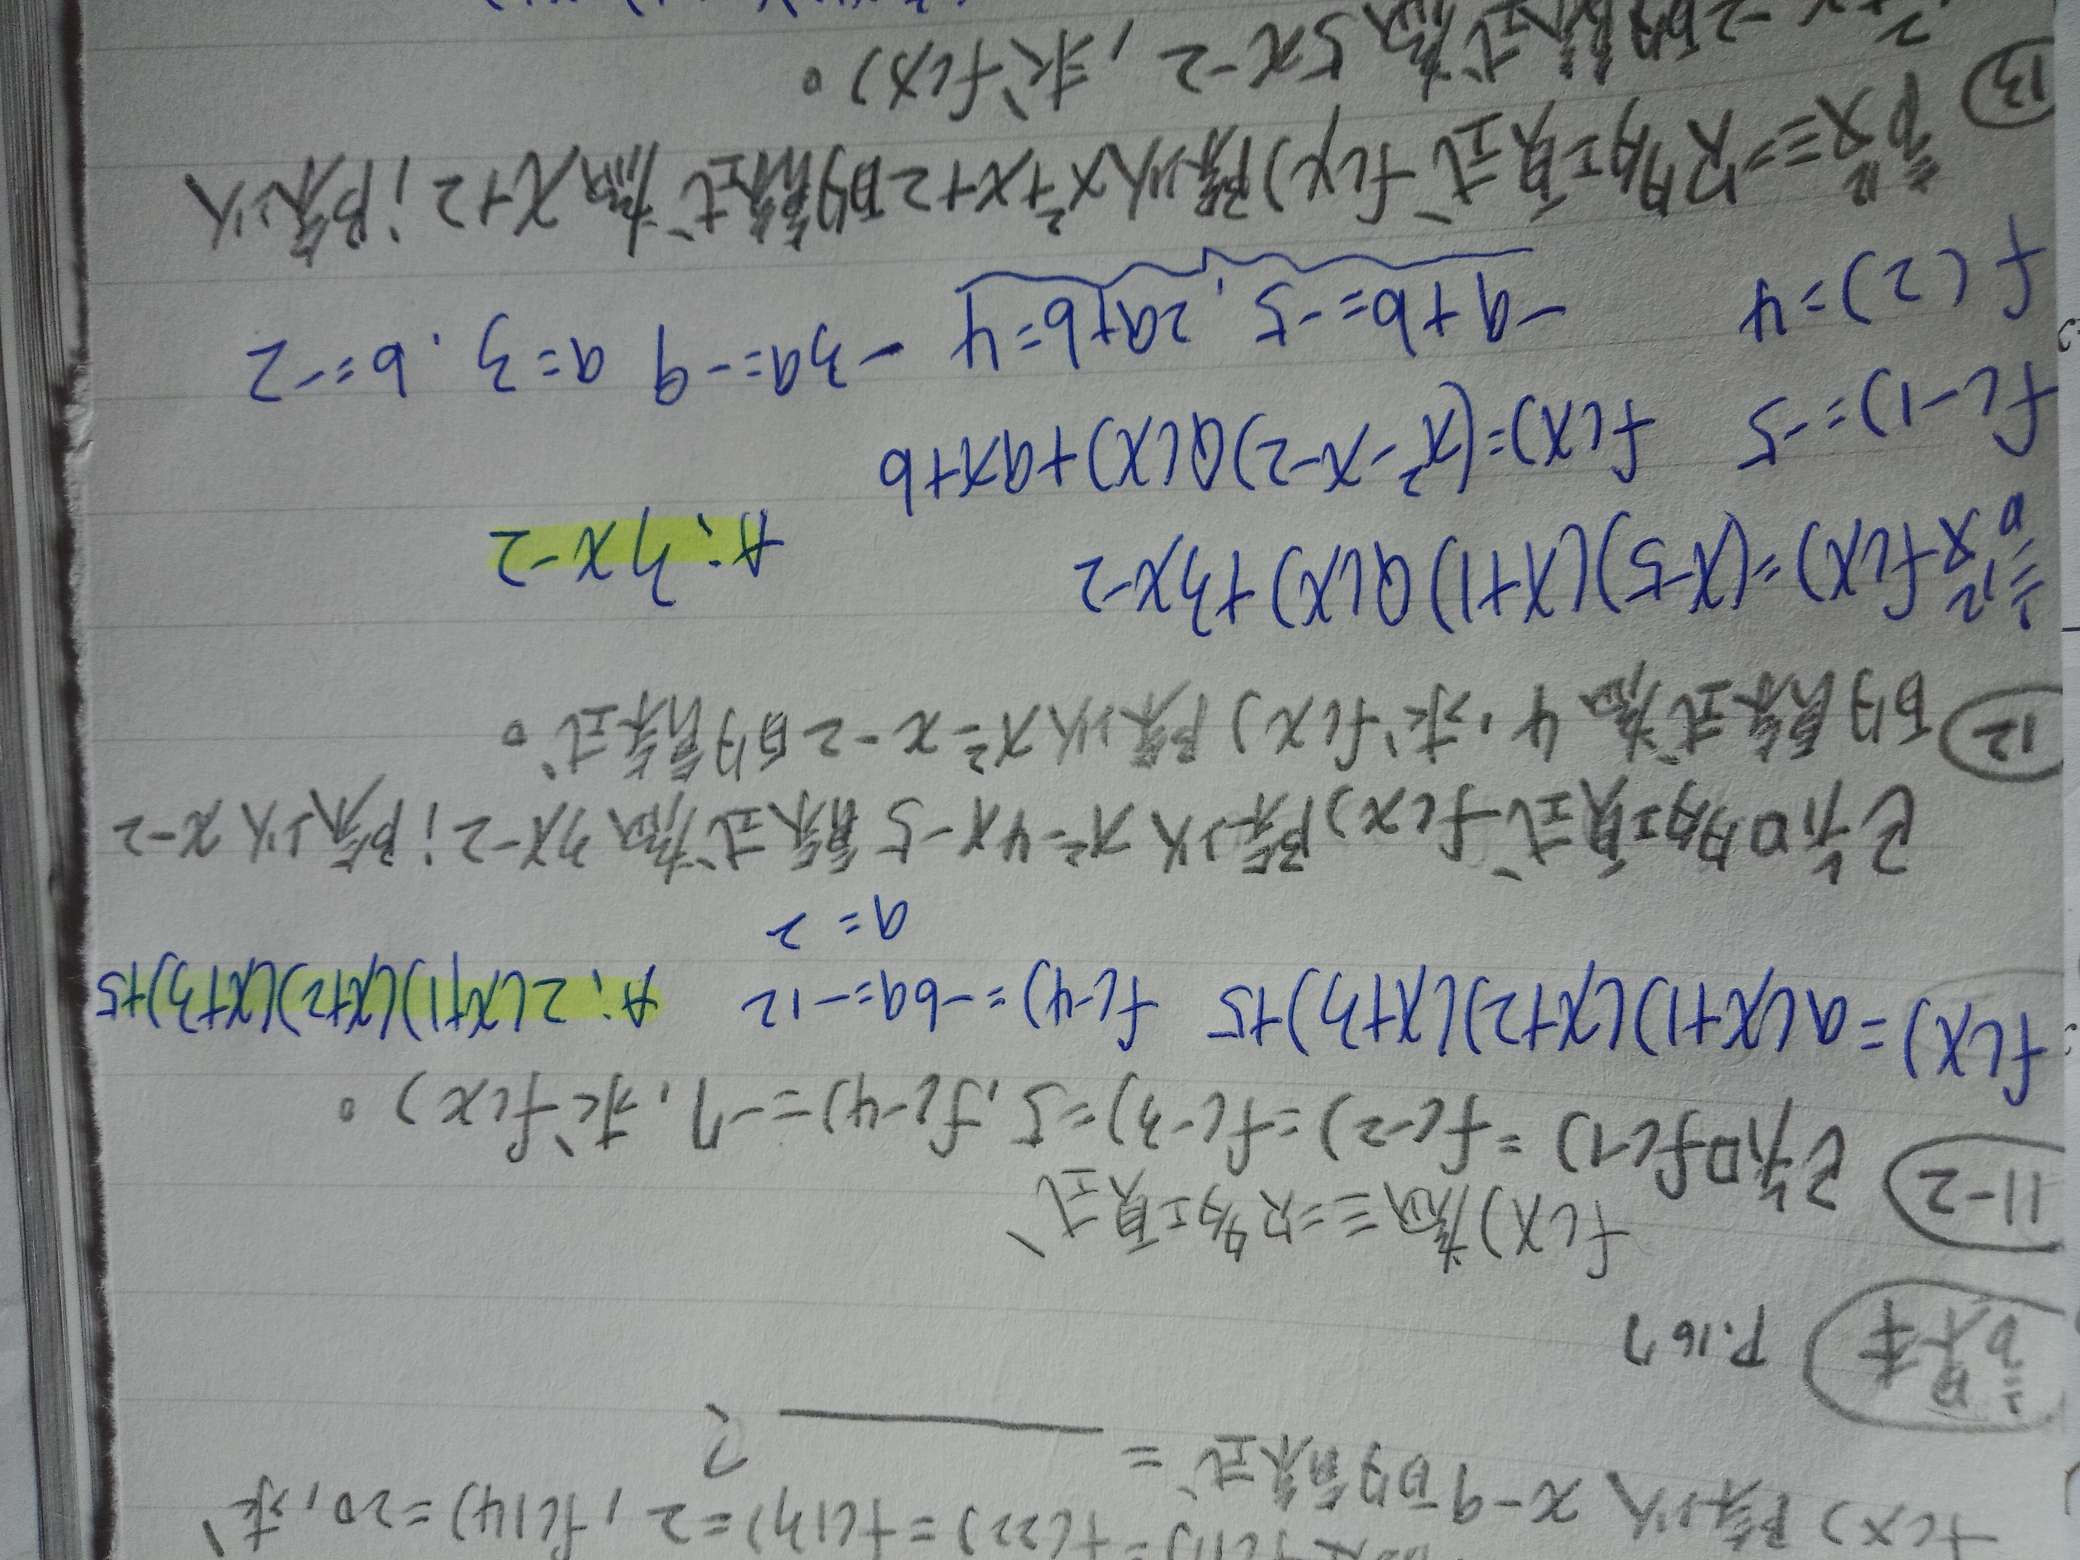 f(x)除以x-9的餘式=______?
f(22)=f(13)=2,f(14)=20,求
P.167
f(x)為三次多項式
11-2 已知f(-1)=f(-2)=f(-3)=5,f(-4)=-7,求f(x)。
f(x)=a(x+1)(x+2)(x+3)+5 f(-4)=-6a=-12 A:2(x+1)(x+2)(x+3)+5
a=2
已知多項式f(x)除以x²-4x-5餘式為3x-2;除以x-2
12 的餘式為4,求f(x)除以x²-x-2的餘式。
設f(x)=(x-5)(x+1)Q(x)+3x-2 A:3x-2
f(-1)=-5 f(x)=(x²-x-2)Q(x)+ax+b
f(2)=4 -a+b=-5,2a+b=4 -3a=-9 a=3.b=-2
設三次多項式f(x)除以x²+x+2的餘式為x+2;除以
13 x²+x-2的餘式為5x-2,求f(x)。